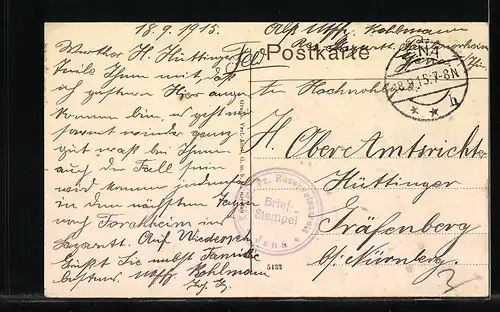 18.9.1915.
Werter H. Hüttinger
Teile Ihnen mit, daß
ich gestern hier ange
kommen bin, es geht mir
soweit wieder ganz
gut was bei Ihnen
auch der Fall sein
wird komme jedenfalls
in den nächsten Tagen
nach Forchheim ins
Lazarett. Auf Wiederseh
Grüßt Sie nebst Familie
bestens. Uffz. Kohlmann
Abs. Uffz. Kohlmann
Res. Lazarett
Jena
Postkarte
JENA
18.9.15.7-8N
h
An Hochwohlgeb.
H. Ober Amtsrichter
Hüttinger
Gräfenberg
b/s. Nürnberg.
Brief-
Stempel
Jena
5133